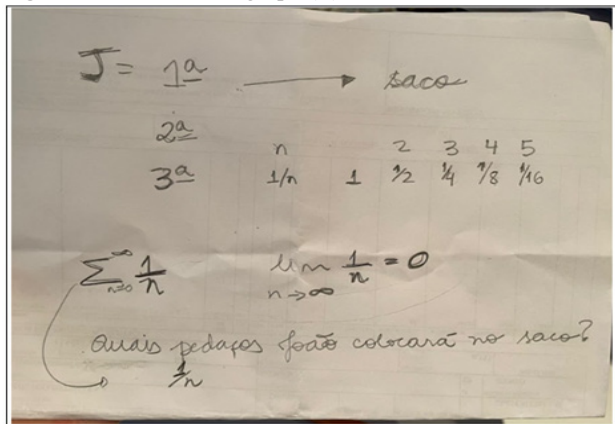 J = 1ª → saco
2ª
n 2 3 4 5
3ª 1/n 1 1/2 1/4 1/8 1/16
∞ ∑ n=0 1/n lim n→∞ 1/n = 0
Quais pedaços João colocará no saco?
1/n